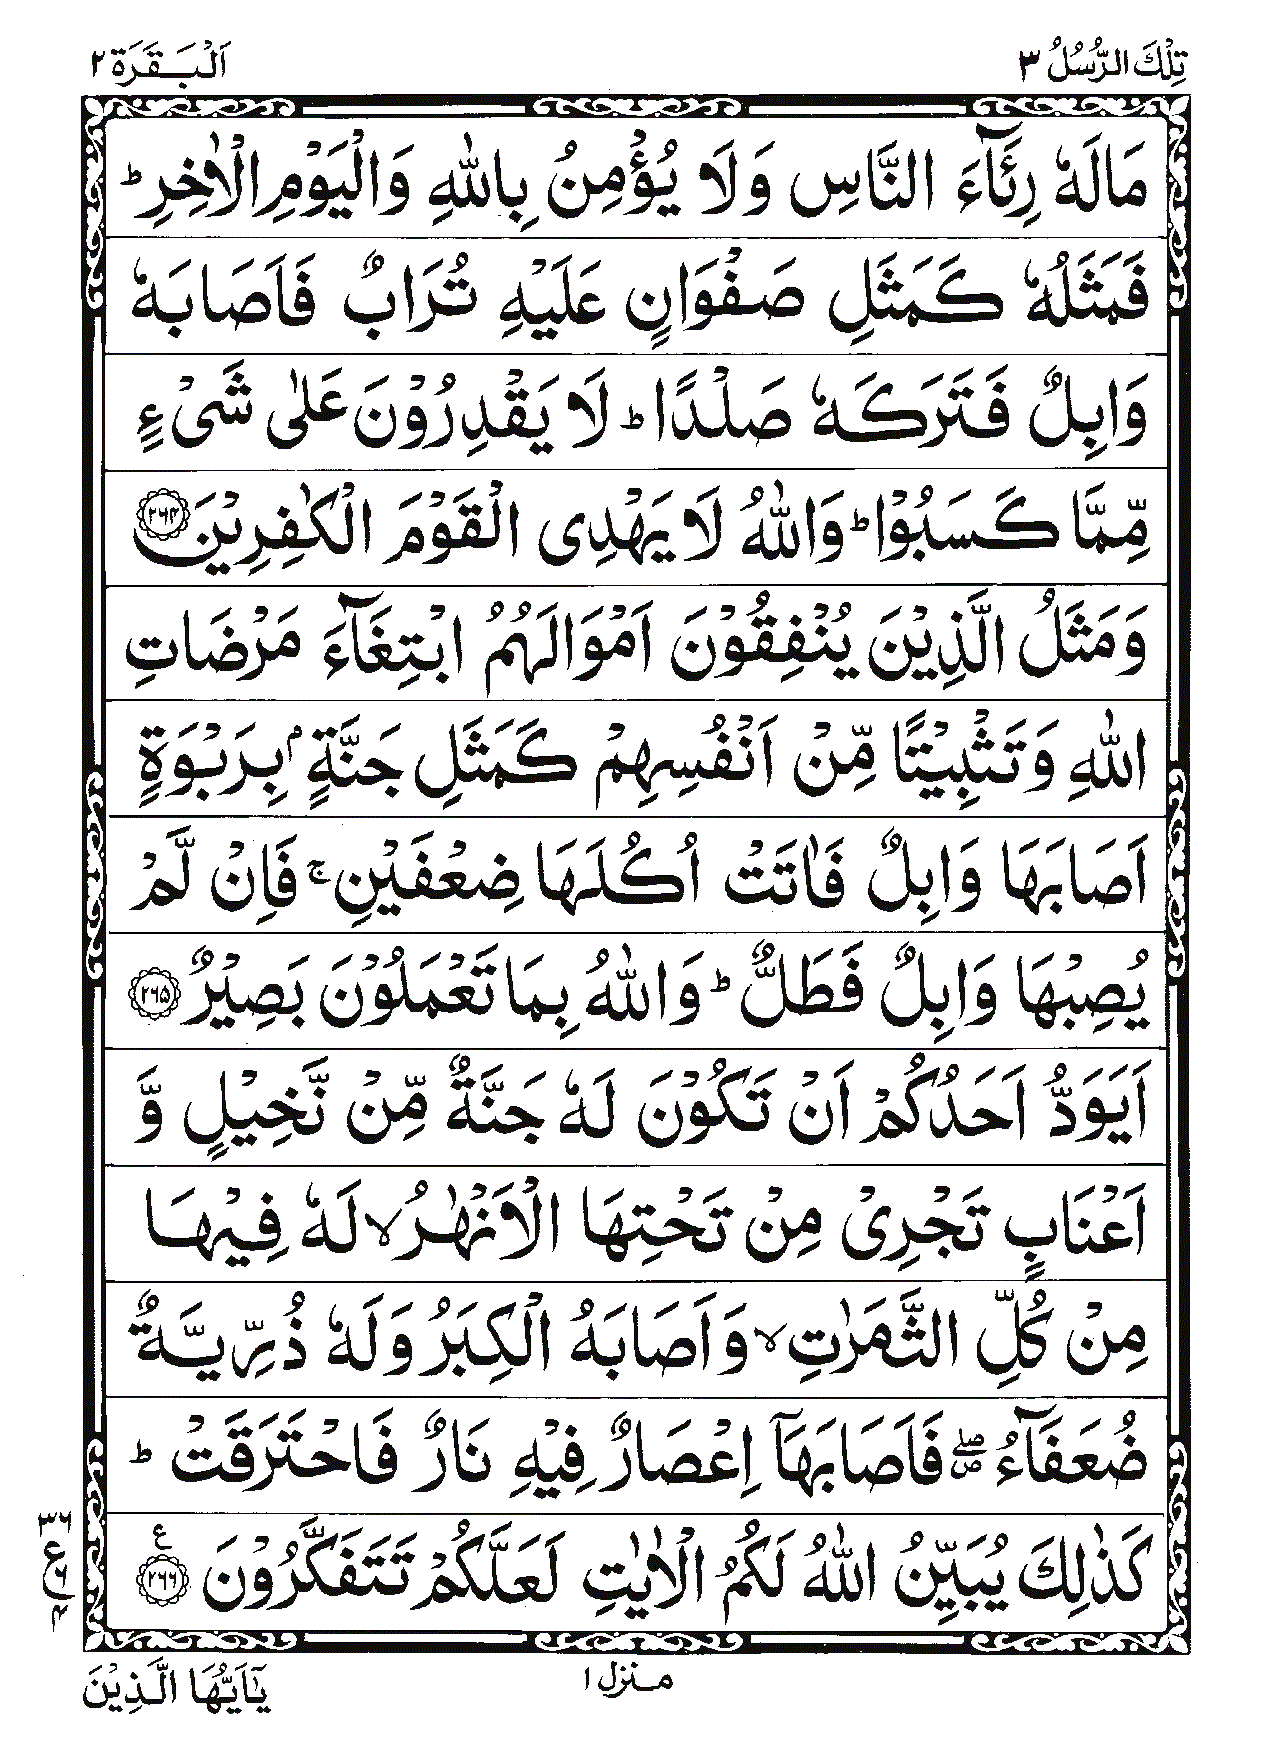 تِلْكَ الرُّسُلُ ٣
اَلْبَقَرَة ٢
مَالَهٗ رِئَآءَ النَّاسِ وَلَا يُؤْمِنُ بِاللّٰهِ وَالْيَوْمِ الْاٰخِرِ ؕ
فَمَثَلُهٗ كَمَثَلِ صَفْوَانٍ عَلَيْهِ تُرَابٌ فَاَصَابَهٗ
وَابِلٌ فَتَرَكَهٗ صَلْدًا ؕ لَا يَقْدِرُوْنَ عَلٰى شَىْءٍ
مِّمَّا كَسَبُوْا ؕ وَاللّٰهُ لَا يَهْدِى الْقَوْمَ الْكٰفِرِيْنَ ۝٢٦٤
وَمَثَلُ الَّذِيْنَ يُنْفِقُوْنَ اَمْوَالَهُمُ ابْتِغَآءَ مَرْضَاتِ
اللّٰهِ وَتَثْبِيْتًا مِّنْ اَنْفُسِهِمْ كَمَثَلِ جَنَّةٍۭ بِرَبْوَةٍ
اَصَابَهَا وَابِلٌ فَاٰتَتْ اُكُلَهَا ضِعْفَيْنِ ۚ فَاِنْ لَّمْ
يُصِبْهَا وَابِلٌ فَطَلٌّ ؕ وَاللّٰهُ بِمَا تَعْمَلُوْنَ بَصِيْرٌ ۝٢٦٥
اَيَوَدُّ اَحَدُكُمْ اَنْ تَكُوْنَ لَهٗ جَنَّةٌ مِّنْ نَّخِيْلٍ وَّ
اَعْنَابٍ تَجْرِىْ مِنْ تَحْتِهَا الْاَنْهٰرُ ۙ لَهٗ فِيْهَا
مِنْ كُلِّ الثَّمَرٰتِ ۙ وَاَصَابَهُ الْكِبَرُ وَلَهٗ ذُرِّيَّةٌ
ضُعَفَآءُ ۖ فَاَصَابَهَاۤ اِعْصَارٌ فِيْهِ نَارٌ فَاحْتَرَقَتْ ؕ
كَذٰلِكَ يُبَيِّنُ اللّٰهُ لَكُمُ الْاٰيٰتِ لَعَلَّكُمْ تَتَفَكَّرُوْنَ ۝٢٦٦ ع
٣٦
ع
٦
٤
منزل ١
يٰۤاَيُّهَا الَّذِيْنَ